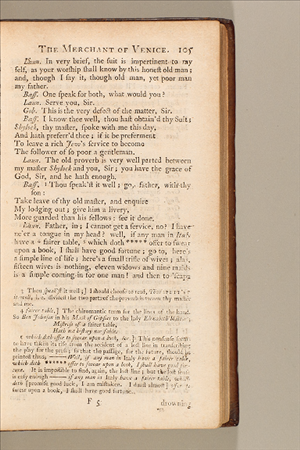 The Merchant of Venice. 105
Laun. In very brief, the suit is impertinent to my
self, as your worship shall know by this honest old man;
and, though I say it, though old man, yet poor man
my father.
Bass. One speak for both, what would you?
Laun. Serve you, Sir.
Gob. This is the very defect of the matter, Sir.
Bass. I know thee well, thou hast obtain'd thy Suit;
Shylock, thy master, spoke with me this day,
And hath preferr'd thee; if it be preferment
To leave a rich Jew's service to become
The follower of so poor a gentleman.
Laun. The old proverb is very well parted between
my master Shylock and you, Sir; you have the grace of
God, Sir, and he hath enough.
Bass. Thou speak'st it well; go, father, with thy
son:
Take leave of thy old master, and enquire
My lodging out; give him a livery,
More guarded than his fellows: see it done.
Laun. Father, in; I cannot get a service, no? I have
ne'er a tongue in my head? well, if any man in Italy
have a fairer table, which doth ***** offer to swear
upon a book, I shall have good fortune; go to, here's
a simple line of life; here's a small trifle of wives; alas,
fifteen wives is nothing, eleven widows and nine maids
is a simple coming-in for one man! and then to 'scape
3 Thou speak'st it well;] I should
4 fairer table,] The chiromantic term for the lines of the hand.
So Ben Johnson in his Mask of Gipsies to the lady Elizabeth
Mistress of a fairer table,
Hath not history nor fable.
5 which doth offer to swear upon a book, &c.]
to have taken its rise from the accident of a lost line in transcribing
the play for the press; so that the passage, for the future, should be
printed thus, —— Well, if any man in Italy have a fairer table,
which doth ***** offer to swear upon a book, I shall have good for-
tune. It is impossible to find, again, the lost line; but the lost sense
is easy enough —— if any man in Italy have a fairer table, which
doth [promise good luck, I am mistaken. I durst almost] offer to
swear upon a book, I shall have good fortune.
F 5 drowning